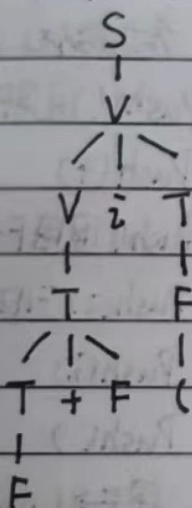 S
V
V i T
T F
T + F (
F